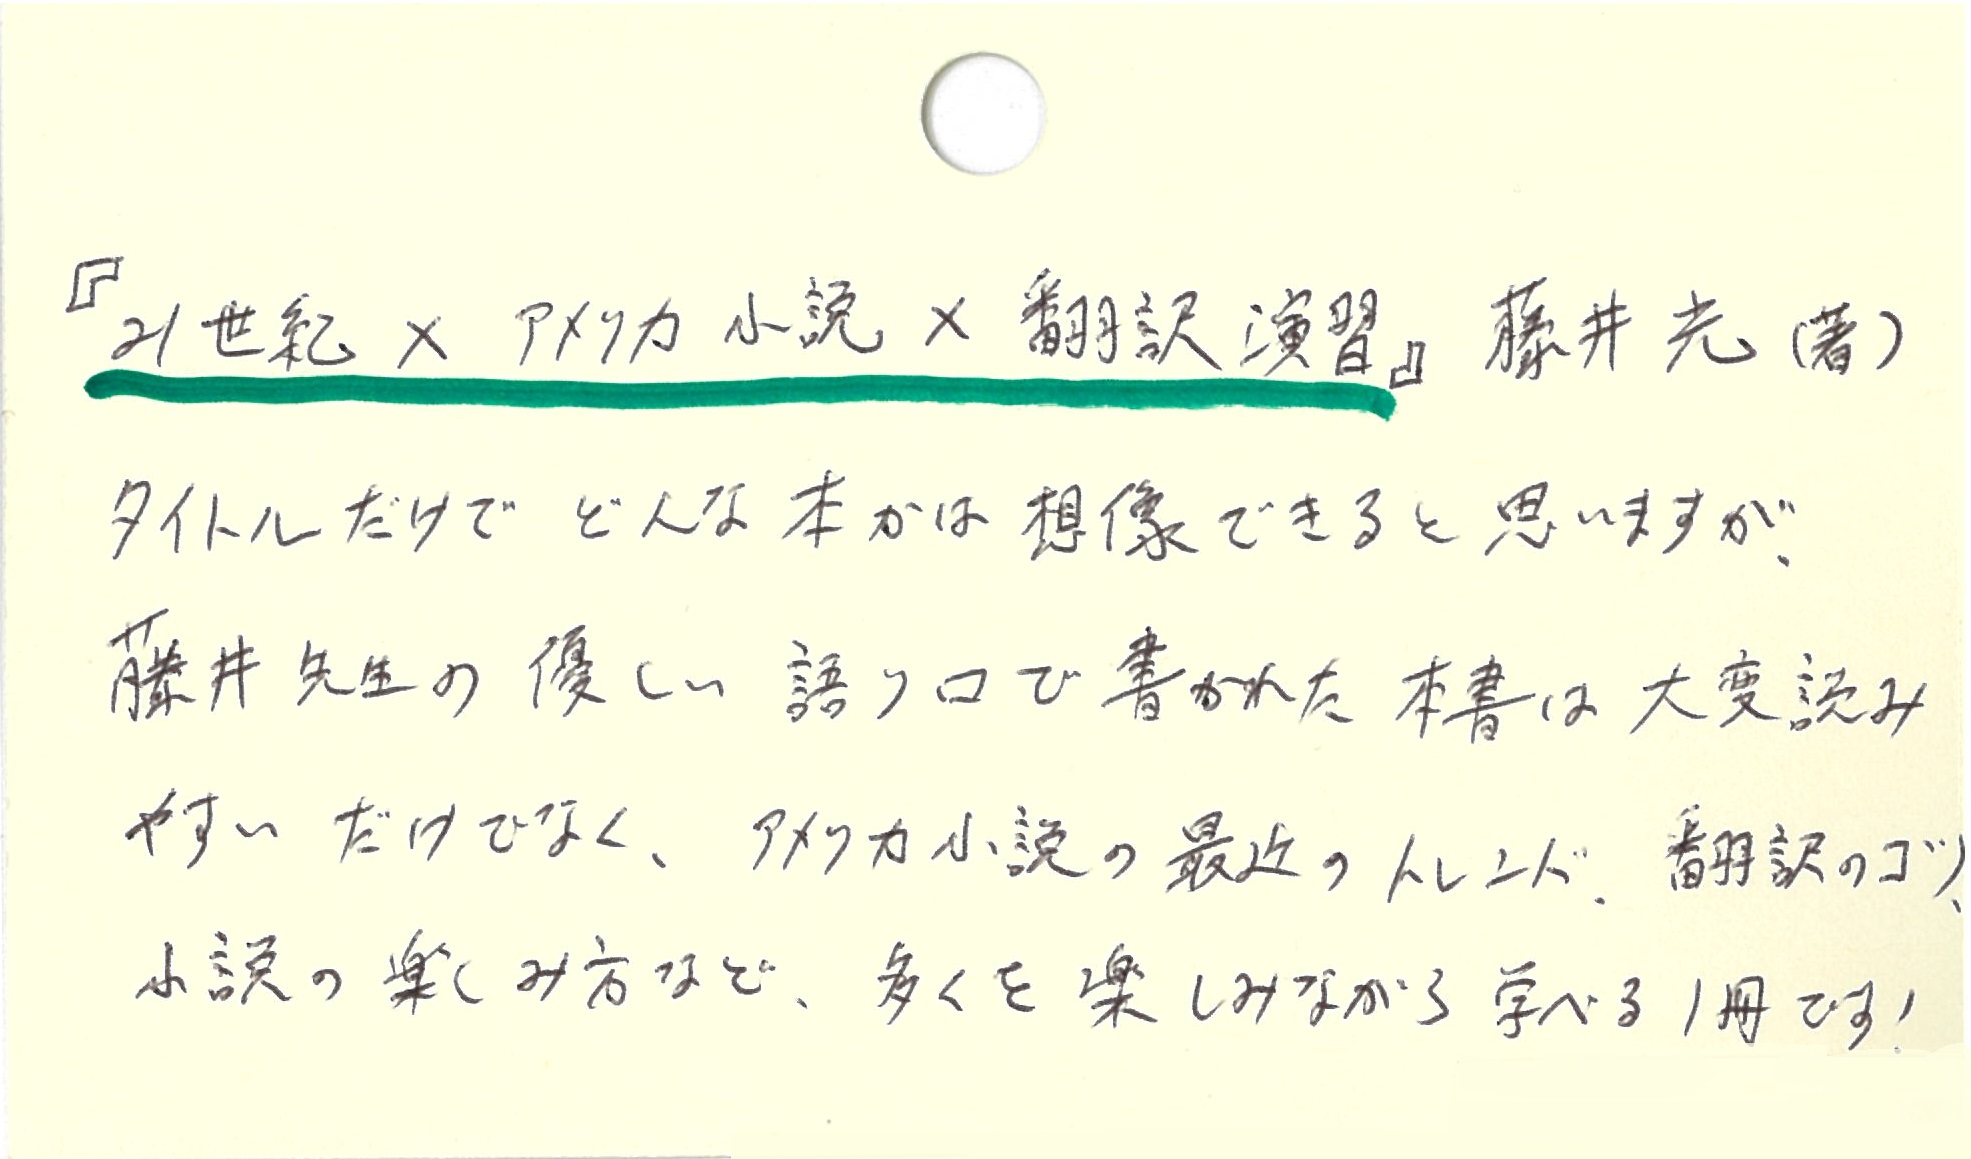 『21世紀×アメリカ小説×翻訳演習』 藤井光(著)
タイトルだけで どんな本かは想像できると思いますが、
藤井先生の優しい語り口で書かれた本書は大変読み
やすいだけでなく、アメリカ小説の最近のトレンド、翻訳のコツ、
小説の楽しみ方など、多くを楽しみながら学べる1冊です!